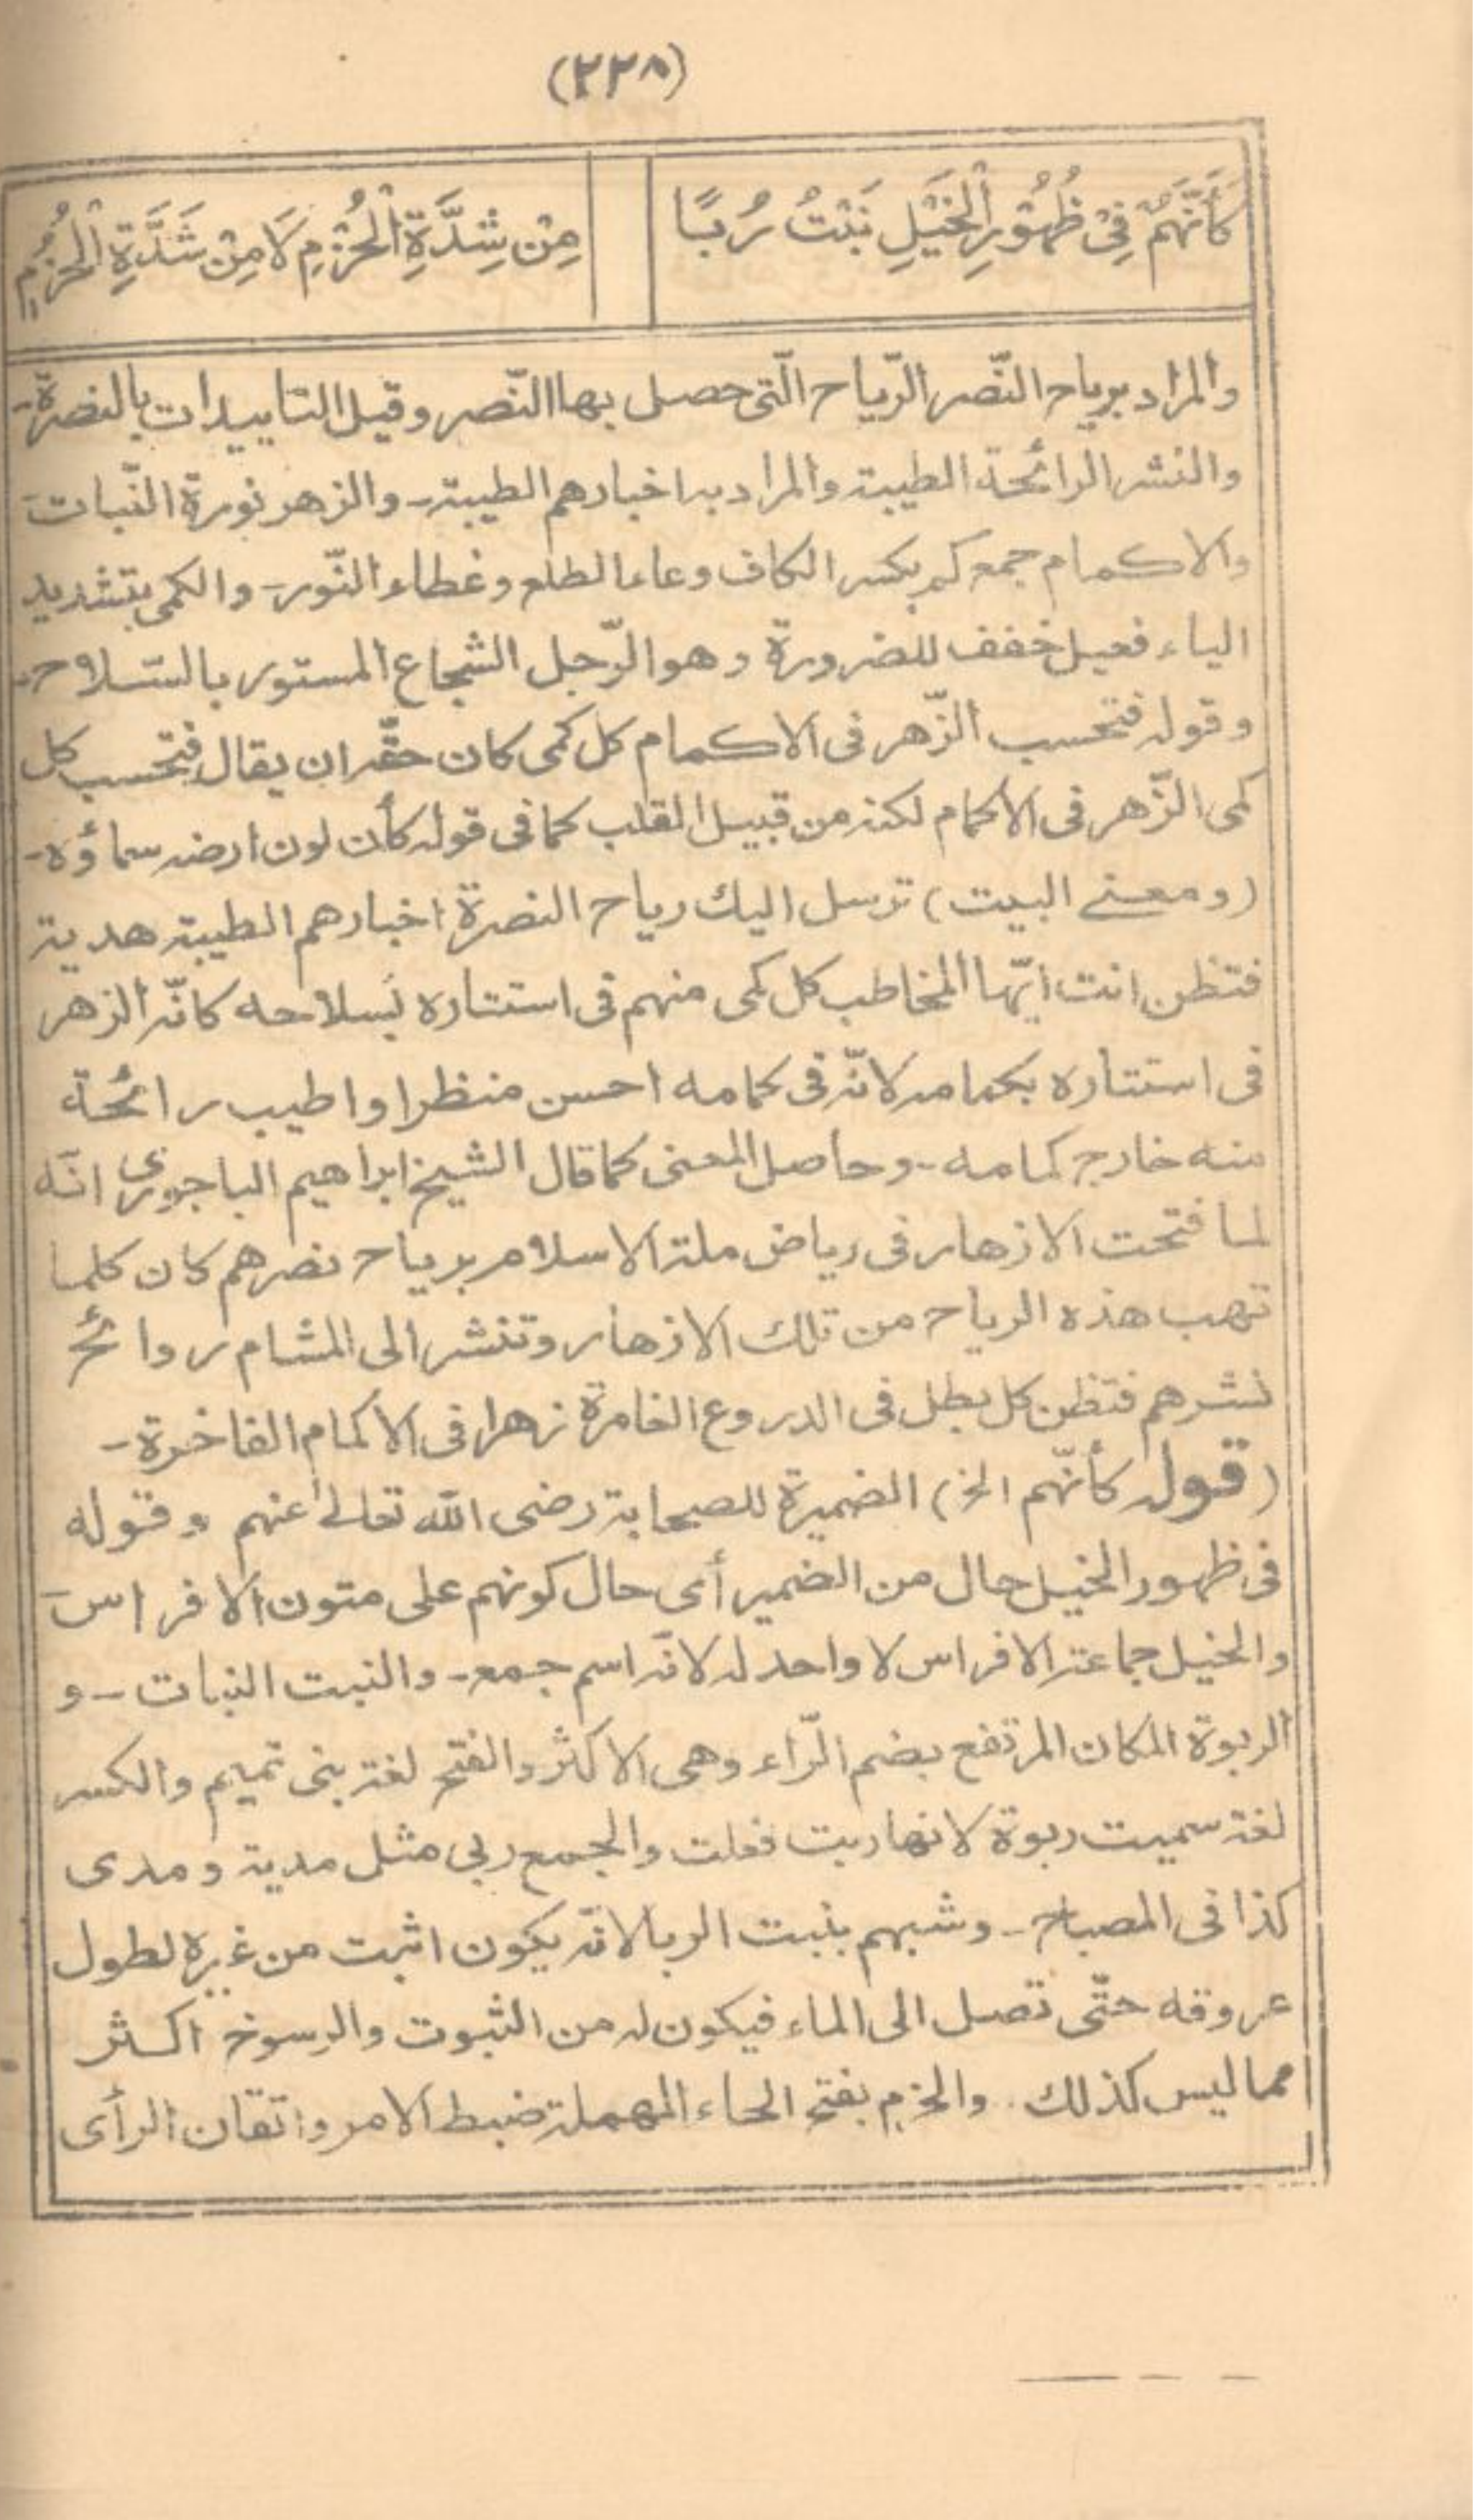 (٢٢٨)
كَأَنَّهُمْ فِيْ ظُهُوْرِ الْخَيْلِ نَبْتُ رُبًا
مِنْ شِدَّةِ الْحَزْمِ لَا مِنْ شَدَّةِ الْحُزُمِ
والمراد برياح النّصر الرّياح الّتى حصل بها النّصر وقيل التاييدات بالنصرة-
والنشر الرائحة الطيبة والمراد به اخبارهم الطيبة- والزهر نورة النّبات-
والاكمام جمع كم بكسر الكاف وعاء الطلع وغطاء النّور- والكمى بتشديد
الياء فعيل خفف للضرورة وهو الرّجل الشجاع المستور بالسّلاح-
وقوله فتحسب الزّهر فى الاكمام كل كمى كان حقه ان يقال فتحسب كل
كمى الزّهر فى الاكمام لكنه من قبيل القلب كما فى قوله كأن لون ارضه سماؤه-
(ومعنے البيت) ترسل اليك رياح النصرة اخبارهم الطيبة هدية
فتظن انت ايّها المخاطب كل كمى منهم فى استتاره بسلاحه كانّه الزهر
فى استتاره بكمامه لانّه فى كمامه احسن منظرا واطيب رائحة
منه خارج كمامه- وحاصل المعنى كما قال الشيخ ابراهيم الباجورى انّه
لما فتحت الازهار فى رياض ملة الاسلام برياح نصرهم كان كلما
تهب هذه الرياح من تلك الازهار وتنشر الى المشام روائح
نشرهم فتظن كل بطل فى الدروع الغامرة زهرا فى الاكمام الفاخرة-
(قوله كأنّهم الخ) الضميرة للصحابة رضى الله تعالى عنهم وقوله
فى ظهور الخيل حال من الضمير أى حال كونهم على متون الافراس-
والخيل جماعة الافراس لا واحد له لانّه اسم جمع- والنبت النبات- و
الربوة المكان المرتفع بضم الرّاء وهى الاكثر والفتح لغة بنى تميم والكسر
لغة سميت ربوة لانها ربت فعلت والجمع ربى مثل مدية ومدى
كذا فى المصباح- وشبهم بنبت الربا لانّه يكون اثبت من غيره لطول
عروقه حتّى تصل الى الماء فيكون له من الثبوت والرسوخ اكثر
مما ليس كذلك. والحزم بفتح الحاء المهملة ضبط الامر واتقان الرأى